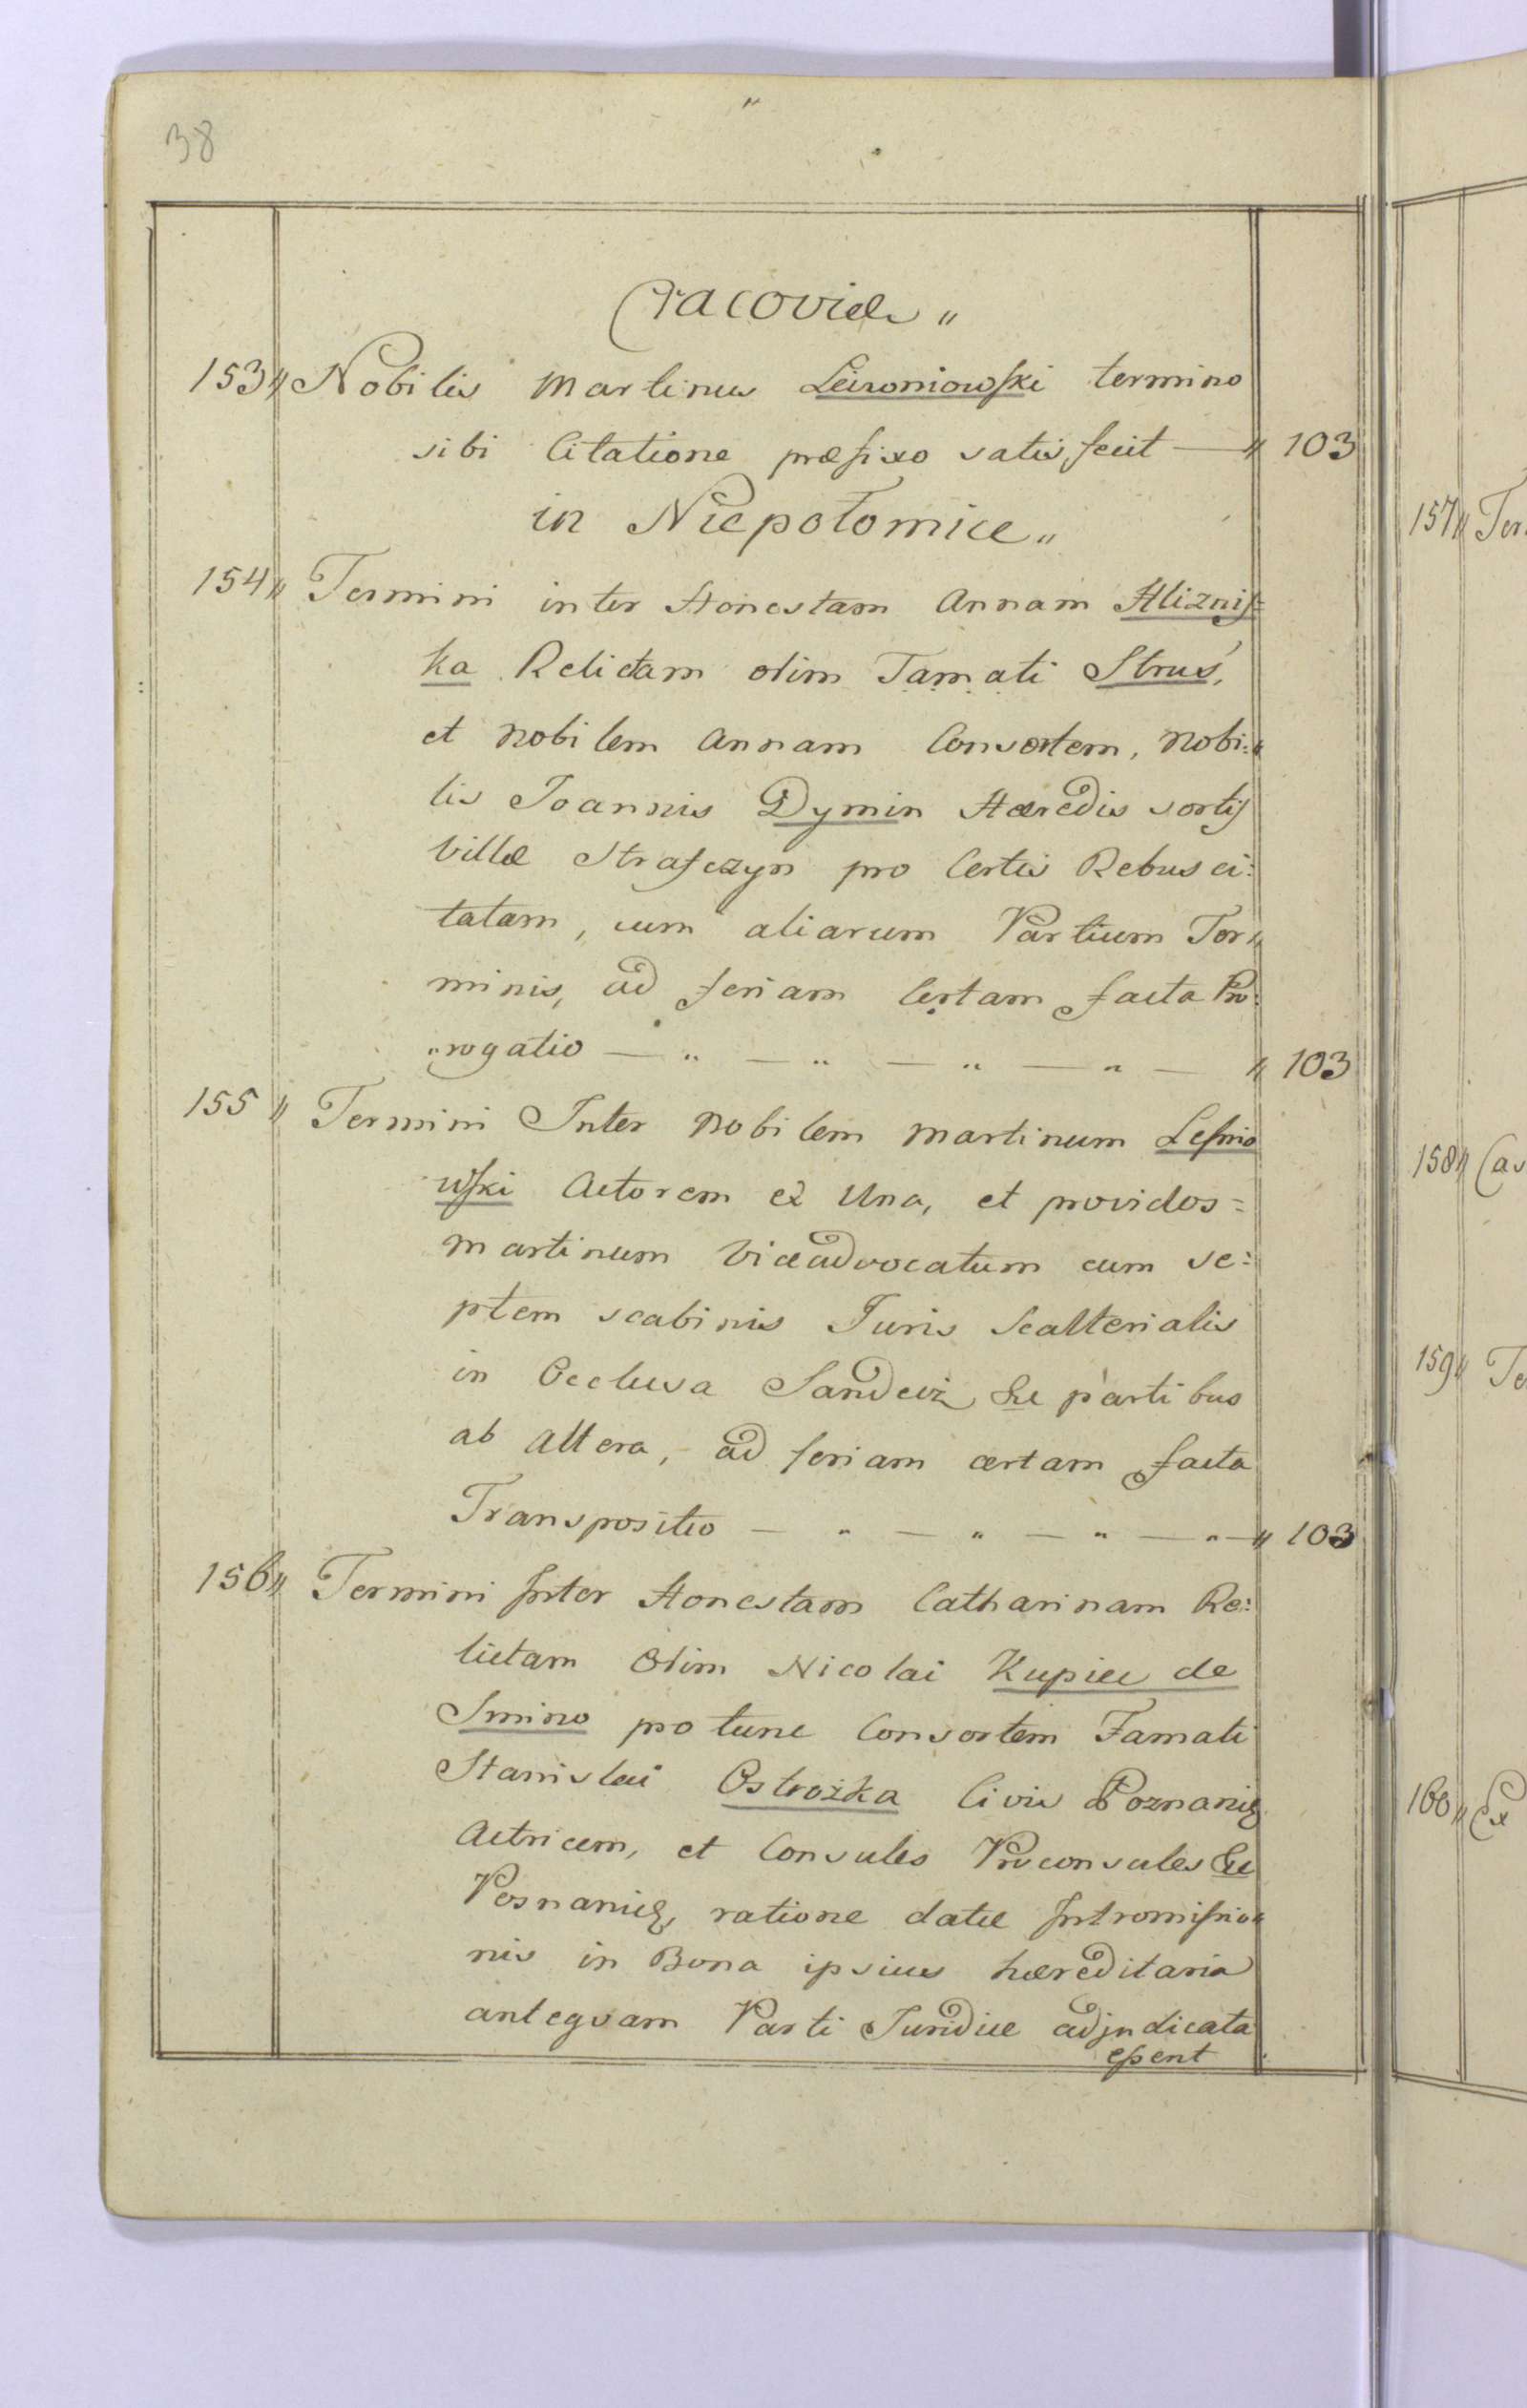 38
Cracoviæ „
153„ Nobilis Martinus Leizoniowski termino
sibi Citatione præfixo satis fecit — „ 103
in Niepołomice „
154„ Termini inter Honestam Annam Hliznis=
ka Relictam olim Famati Strus,
et Nobilem Annam Consortem, Nobi:
lis Joannis Dymin Hæredis sortis
Villæ Strasczyn pro Certis Rebus ci:
tatam, cum aliarum Partium Ter„
minis, ad feriam Certam facta Pro:
„rogatio — „ — „ — „ — „ — „ 103
155„ Termini Inter Nobilem Martinum Lesnio
wski Actorem ex Una, et providos=
Martinum Viceadvocatum cum se:
ptem scabinis Juris Sculterialis
in Occlusa Sandecz &c partibus
ab Altera, ad feriam certam facta
Transpositio — „ — „ — „ — „ — „ 103
156„ Termini Inter Honestam Catharinam Re:
lictam Olim Nicolai Kupiec de
Smino pro tunc Consortem Famati
Stanislai Ostrożka Civis Poznaniæ
Actricem, et Consules Proconsules &c
Posnaniæ, ratione datæ Intromissio„
nis in Bona ipsius hæreditaria
antequam Parti Juridice adjudicata
essent
157„ Ter
158„ Ca
159„ Te
160„ Ex